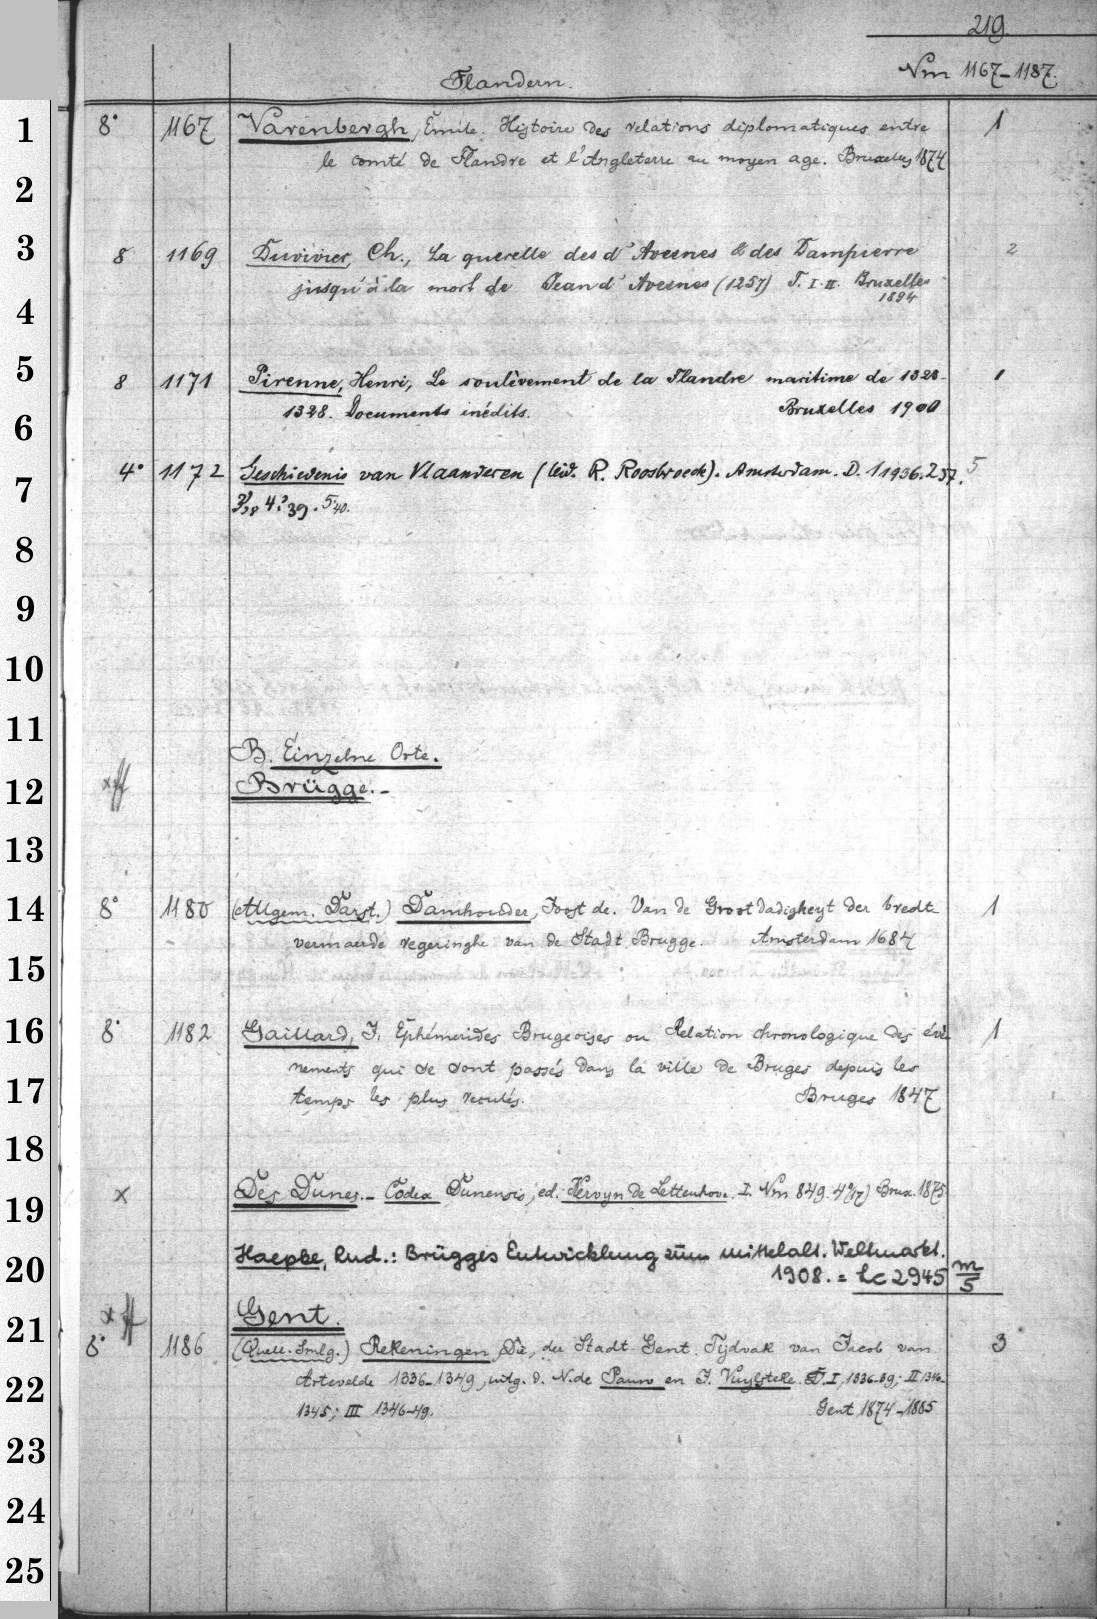 219.
Flandern. Nm 1167-1187.
1 8° 1167 Varenbergh, Émile. Histoire des relations diplomatiques entre 1
le comté de Flandre et l'Angleterre au moyen age. Bruxelles 1874
2
3 8 1169 Duvivier, Ch., La querelle des d'Avesnes & des Dampierre 2
jusqu'à la mort de Jean d'Avesnes (1257) T. I-II. Bruxelles
4 1894
5 8 1171 Pirenne, Henri, Le soulèvement de la Flandre maritime de 1323- 1
6 1328. Documents inédits. Bruxelles 1900
7 4° 1172 Geschiedenis van Vlaanderen (leid. R. Roosbroeck). Amsterdam. D. 1 1936. 2 37. 5
3,38 4.39. 5 40.
8
9
10
11
B. Einzelne Orte.
12 Brügge.-
13
14 8° 1180 (Allgem. Darst.) Damhouder, Joost de. Van de Grootdadigheyt der breedt- 1
vermaerde regeringhe van de Stadt Brugge. Amsterdam 1684
15
16 8° 1182 Gaillard, J. Ephémerides Brugeoises ou Relation chronologique des évè- 1
nements qui se sont passés dans la ville de Bruges depuis les
17 temps les plus reculés. Bruges 1847
18
19 x Des Dunes.- Codex Dunensis, ed. Kervyn de Lettenhove. I. Nm 849. 4°/17) Brux. 1875
20 Haepke, Rud.: Brügges Entwicklung zum mittelalt. Weltmarkt.
1908. = Lc 2945 m/5
21 Gent.
8° 1186 (Quell. Smlg.) Rekeningen, Die, der Stadt Gent. Tijdvak van Jacob van 3
22 Artevelde 1336-1349, uitg. d. N. de Pauw en J. Vuylsteke. D. I, 1336-39; II 1340-
1345; III 1346-49. Gent 1874-1885
23
24
25